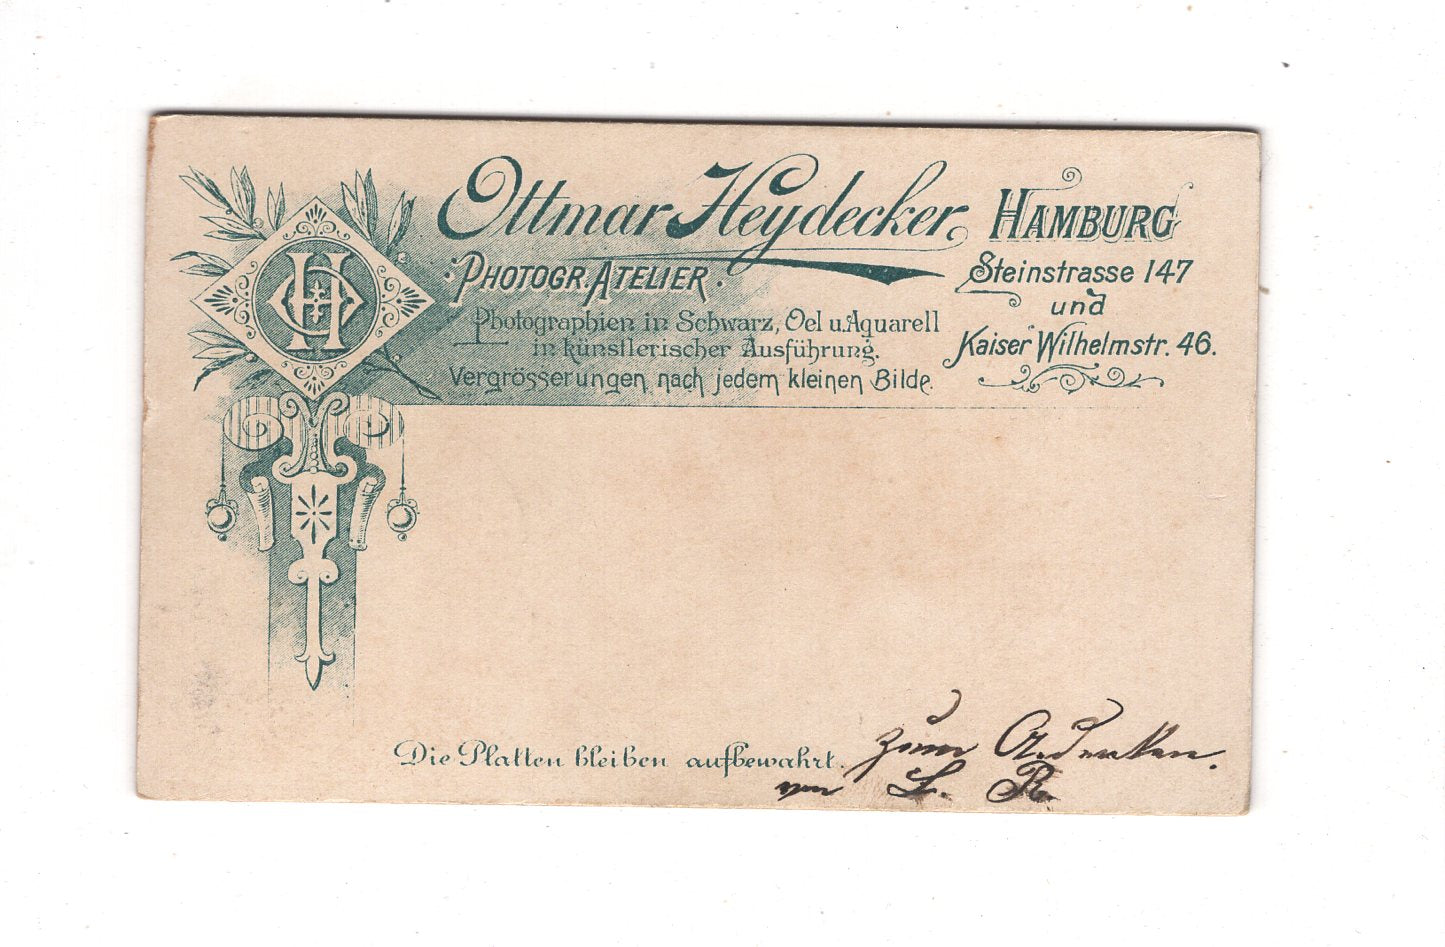 OH
Ottmar Heydecker, HAMBURG
PHOTOGR. ATELIER.
Photographien in Schwarz, Oel u. Aquarell
in künstlerischer Ausführung.
Vergrösserungen nach jedem kleinen Bilde.
Steinstrasse 147
und
Kaiser Wilhelmstr. 46.
Die Platten bleiben aufbewahrt.
zum Andenken.
von L. R.